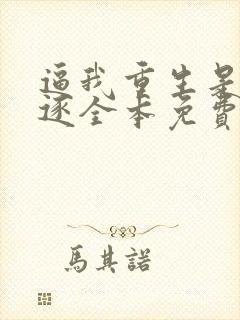 逼我重生是
逐全本免費
馬其諾